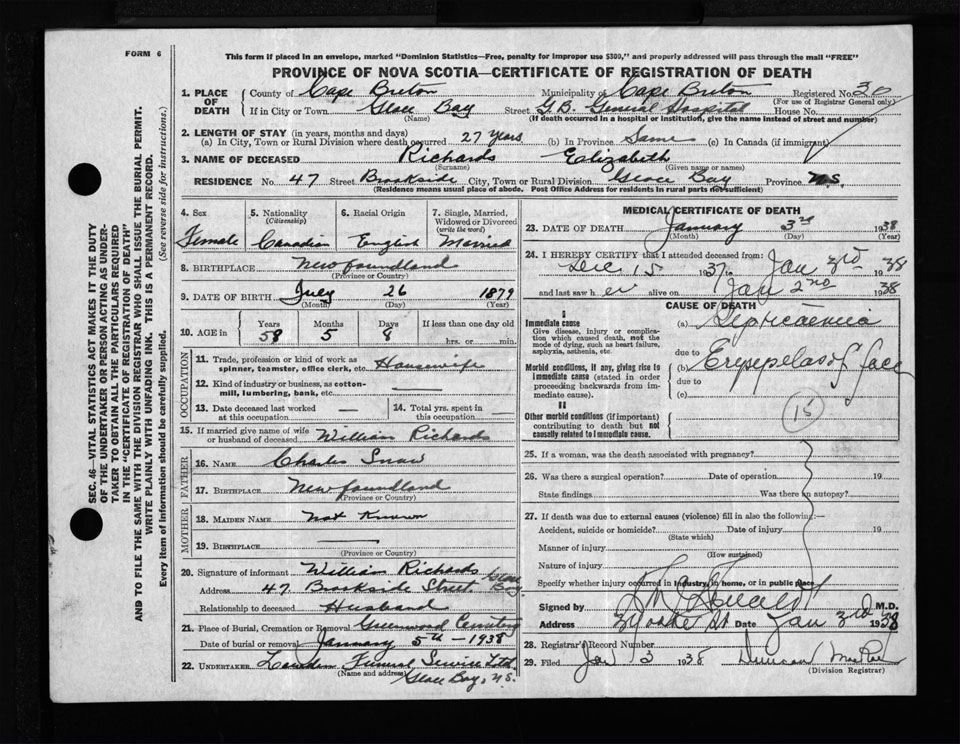 FORM 6
This form if placed in an envelope, marked "Dominion Statistics—Free, penalty for improper use $300," and properly addressed will pass through the mail "FREE"
PROVINCE OF NOVA SCOTIA—CERTIFICATE OF REGISTRATION OF DEATH
SEC. 46—VITAL STATISTICS ACT MAKES IT THE DUTY
OF THE UNDERTAKER OR PERSON ACTING AS UNDER-
TAKER TO OBTAIN ALL THE PARTICULARS REQUIRED
IN THE "CERTIFICATE OF REGISTRATION OF DEATH"
AND TO FILE THE SAME WITH THE DIVISION REGISTRAR WHO SHALL ISSUE THE BURIAL PERMIT.
WRITE PLAINLY WITH UNFADING INK. THIS IS A PERMANENT RECORD.
Every item of information should be carefully supplied. (See reverse side for instructions.)
1. PLACE OF DEATH
County of Cape Breton Municipality of Cape Breton Registered No. 30
(For use of Registrar General only)
If in City or Town Glace Bay Street G.B. General Hospital House No.
(Name) (If death occurred in a hospital or institution, give the name instead of street and number)
2. LENGTH OF STAY (in years, months and days)
(a) In City, Town or Rural Division where death occurred 27 years (b) In Province Same (c) In Canada (if immigrant)
3. NAME OF DECEASED Richards Elizabeth
(Surname) (Given name or names)
RESIDENCE No. 47 Street Brookside City, Town or Rural Division Glace Bay Province N.S.
(Residence means usual place of abode. Post Office Address for residents in rural parts not sufficient)
4. Sex 5. Nationality (Citizenship) 6. Racial Origin 7. Single, Married, Widowed or Divorced (write the word)
Female Canadian English Married
8. BIRTHPLACE Newfoundland
(Province or Country)
9. DATE OF BIRTH July 26 1879
(Month) (Day) (Year)
10. AGE in Years Months Days If less than one day old
58 5 8 hrs. or min.
OCCUPATION
11. Trade, profession or kind of work as spinner, teamster, office clerk, etc. Housewife
12. Kind of industry or business, as cotton-mill, lumbering, bank, etc.
13. Date deceased last worked at this occupation 14. Total yrs. spent in this occupation
15. If married give name of wife or husband of deceased William Richards
FATHER
16. NAME Charles Snow
17. BIRTHPLACE Newfoundland
(Province or Country)
MOTHER
18. MAIDEN NAME Not Known
19. BIRTHPLACE
(Province or Country)
20. Signature of informant William Richards
Address 47 Brookside Street Glace Bay
Relationship to deceased Husband
21. Place of Burial, Cremation or Removal Greenwood Cemetery
Date of burial or removal January 5th — 1938
22. UNDERTAKER Funeral Service Ltd
(Name and address) Glace Bay, N.S.
MEDICAL CERTIFICATE OF DEATH
23. DATE OF DEATH January 3rd 1938
(Month) (Day) (Year)
24. I HEREBY CERTIFY that I attended deceased from:
Dec 15 1937 to Jan 3rd 1938
and last saw her alive on Jan 2nd 1938
CAUSE OF DEATH
I
Immediate cause
Give disease, injury or complication which caused death, not the mode of dying, such as heart failure, asphyxia, asthenia, etc.
(a) Septicaemia
due to
Morbid conditions, if any, giving rise to immediate cause (stated in order proceeding backwards from immediate cause).
(b) Erysipelas of face
due to
(c)
15
II
Other morbid conditions (if important) contributing to death but not causally related to immediate cause.
25. If a woman, was the death associated with pregnancy?
26. Was there a surgical operation? Date of operation 19
State findings Was there an autopsy?
27. If death was due to external causes (violence) fill in also the following:—
Accident, suicide or homicide? Date of injury 19
(State which)
Manner of injury
(How sustained)
Nature of injury
Specify whether injury occurred in industry, in home, or in public place
Signed by M.D.
Address St Date Jan 3rd 1938
28. Registrar's Record Number
29. Filed Jan 3 1938 Duncan MacRae
(Division Registrar)